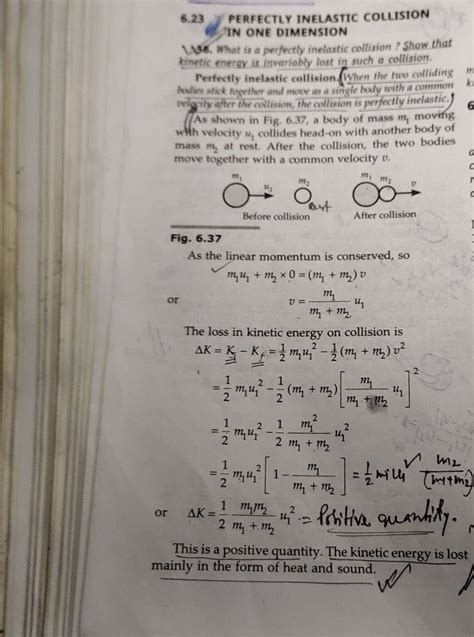 6.23 PERFECTLY INELASTIC COLLISION
IN ONE DIMENSION
38. What is a perfectly inelastic collision ? Show that
kinetic energy is invariably lost in such a collision.
Perfectly inelastic collision. When the two colliding
bodies stick together and move as a single body with a common
velocity after the collision, the collision is perfectly inelastic.
As shown in Fig. 6.37, a body of mass m₁ moving
with velocity u₁ collides head-on with another body of
mass m₂ at rest. After the collision, the two bodies
move together with a common velocity v.
m₁ u₁ m₂ m₁ m₂ v
Rest
Before collision After collision
Fig. 6.37
As the linear momentum is conserved, so
m₁u₁ + m₂ × 0 = (m₁ + m₂) v
or v = m₁ / (m₁ + m₂) u₁
The loss in kinetic energy on collision is
ΔK = K_i – K_f = 1/2 m₁u₁² – 1/2 (m₁ + m₂) v²
= 1/2 m₁u₁² – 1/2 (m₁ + m₂) [m₁ / (m₁ + m₂) u₁]²
= 1/2 m₁u₁² – 1/2 m₁² / (m₁ + m₂) u₁²
= 1/2 m₁u₁² [1 – m₁ / (m₁ + m₂)] = 1/2 m₁u₁ m₂ / (m₁+m₂)
or ΔK = 1/2 m₁m₂ / (m₁ + m₂) u₁² = Positive quantity.
This is a positive quantity. The kinetic energy is lost
mainly in the form of heat and sound.